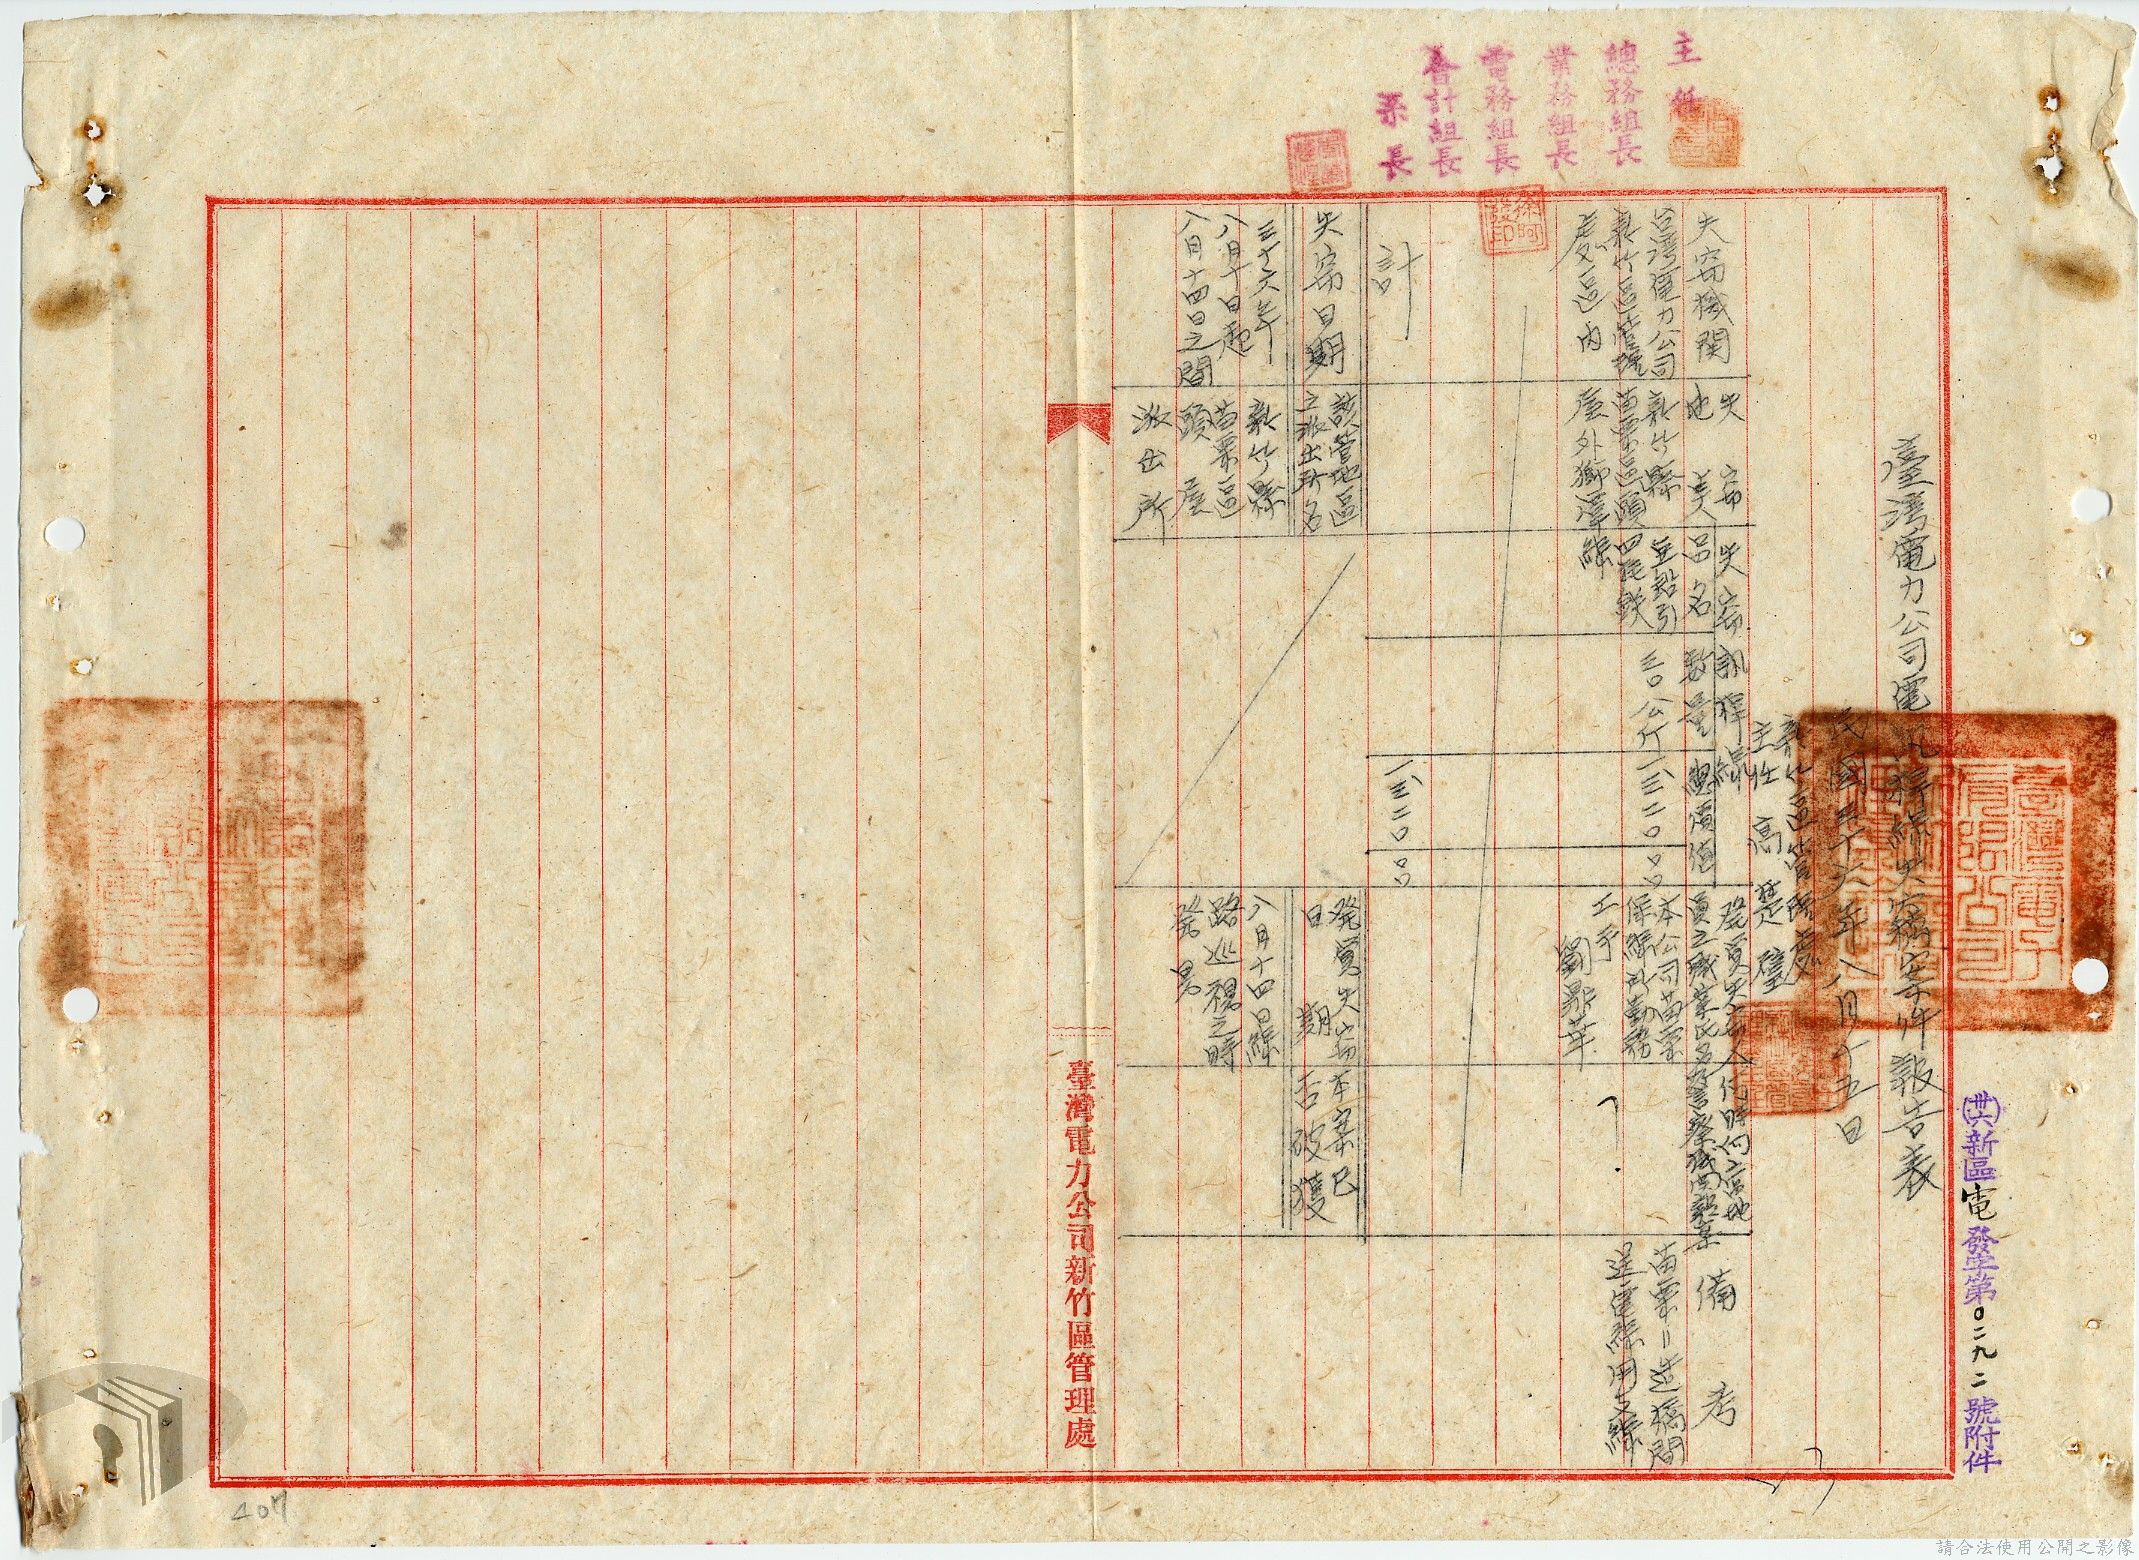 主任
總務組長
業務組長
電務組長
會計組長
梁長
(卅六)新區電發字第0二九二號附件
臺灣電力公司電訊桿線失竊案件報告表
民國三十六年八月十五日
新竹區管理處
主任 高楚璧
失竊機関
台湾電力公司
新竹區管理
處區内
失竊
地美
新竹縣
苗栗區頭
屋外獅潭線
失竊訊桿線
品名
亞鉛引
四粍鉄
線
数量
三0公斤
總價值
一三二00.00
發買失竊人
員之職業氏名
本公司苗栗
保線所勤務
工手
劉鼎華
何時向當地
警察機関報案
備考
苗栗=造橋間
送電線用支線
計
一三二00.00
失竊日期
三十六年
八月十日起
八月十四日之間
該管地區
之派出所名
新竹縣
苗栗區
頭屋
派出所
發買失竊
日期
八月十四日線
路巡視之時
發見
本案已
否破獲
臺灣電力公司新竹區管理處
407
請合法使用公開之影像